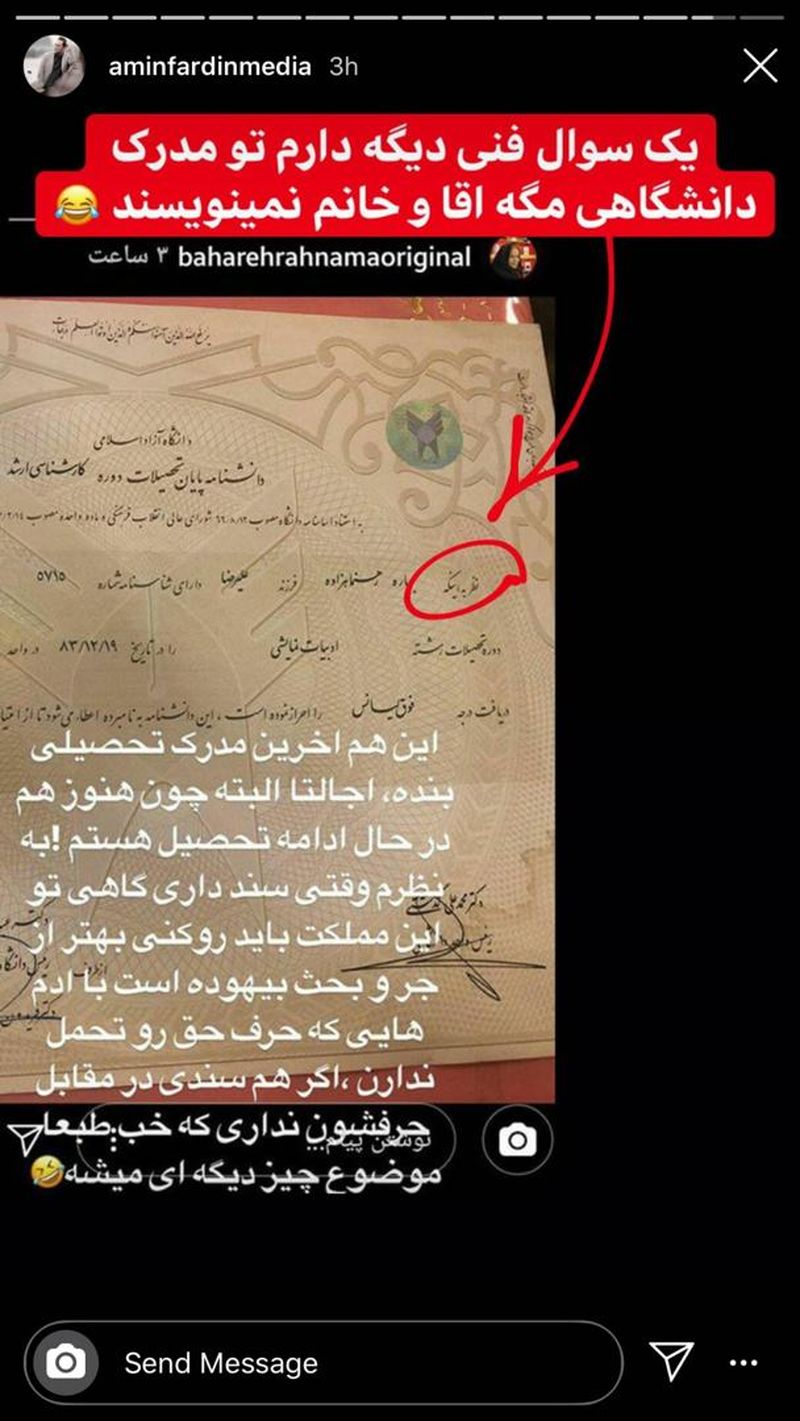 aminfardinmedia 3h
یک سوال فنی دیگه دارم تو مدرک
دانشگاهی مگه اقا و خانم نمینویسند 😂
baharehrahnamaoriginal ۳ ساعت
دانشگاه آزاد اسلامی
دانشنامه پایان تحصیلات دوره کارشناسی ارشد
به استناد اساسنامه دانشگاه مصوب شورای عالی انقلاب فرهنگی و ماده واحده مصوب
نظر به اینکه هاره رهنمازاده فرزند علیرضا دارای شناسنامه شماره ۵۷۱۵
دوره تحصیلات رشته ادبیات نمایشی را در تاریخ ۸۳/۱۲/۱۹ در واحد
دریافت درجه فوق لیسانس را احراز نموده است، این دانشنامه به نامبرده اعطا می شود تا از
این هم اخرین مدرک تحصیلی
بنده، اجالتا البته چون هنوز هم
در حال ادامه تحصیل هستم !به
نظرم وقتی سند داری گاهی تو
این مملکت باید روکنی بهتر از
جر و بحث بیهوده است با ادم
هایی که حرف حق رو تحمل
ندارن ،اگر هم سندی در مقابل
حرفشون نداری که خب طبعا
موضوع چیز دیگه ای میشه🤣
نوشتن پیام...
Send Message